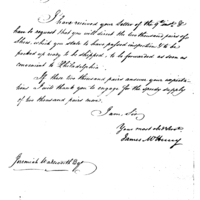 I have received your Letter of the 9th inst. &
have to request that you will direct the ten thousand pairs of
Shoes, which you state to have passed inspection & to be
packed up ready to be shipped, to be forwarded as soon as
convenient to Philadelphia.
If these ten thousand pairs answer your expectations
I will thank you to engage for the speedy supply
of ten thousand pairs more.
I am, Sir,
Your most obt. Servt.
James McHenry
Jeremiah Wadsworth Esqr.